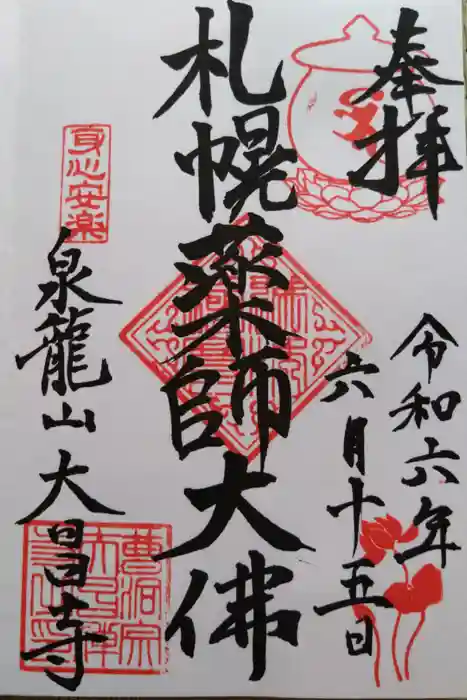 奉拝
令和六年
六月十五日
札幌薬師大佛
身心安楽
泉龍山大昌寺
曹洞宗